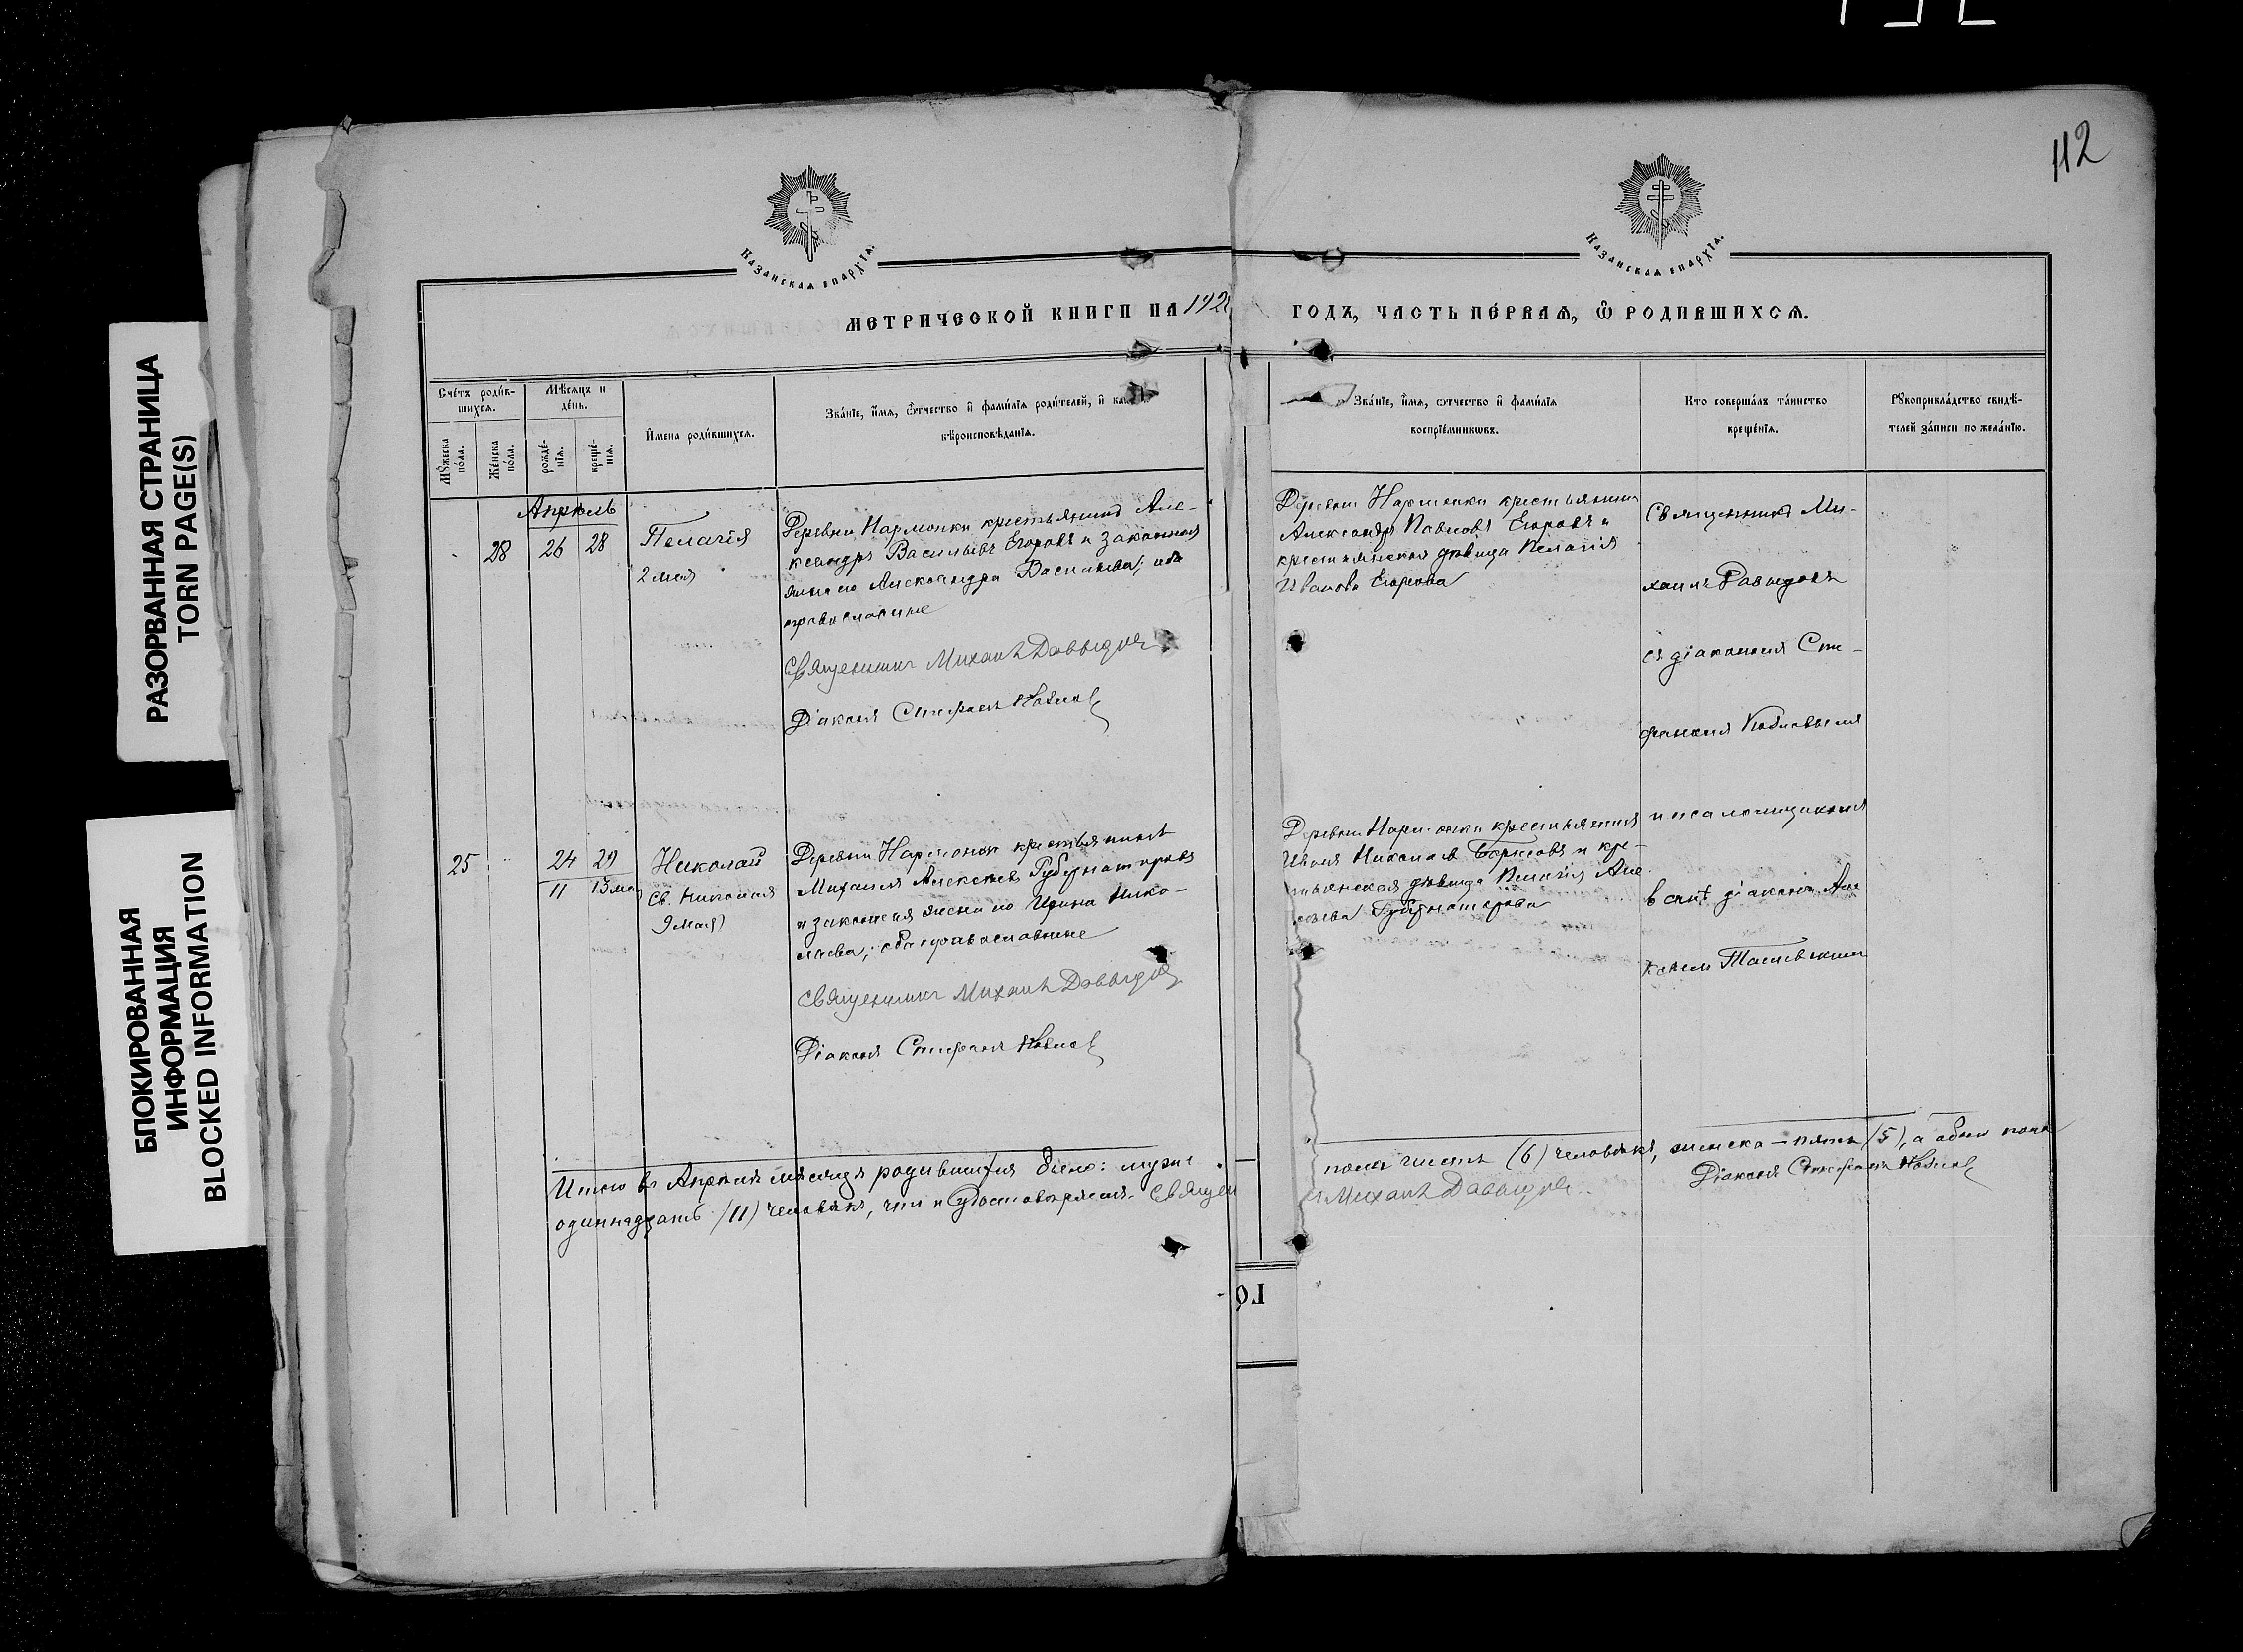 112
РАЗОРВАННАЯ СТРАНИЦА
TORN PAGE(S)
БЛОКИРОВАННАЯ
ИНФОРМАЦИЯ
BLOCKED INFORMATION
Казанская епархїѧ.
Казанская епархїѧ.
МЕТРИЧЕСКОЙ КНИГИ НА 192
ГОДЪ, ЧАСТЬ ПЕ́РВАѦ, Ѽ РОДИВШИХСѦ.
Счéтъ роди́в-
шихсѧ.
Мѣ́сѧцъ и
де́нь.
Мꙋ́жеска
по́ла.
Же́нска
по́ла.
рожде́-
нїѧ.
креще́-
нїѧ.
И҆мена роди́вшихсѧ.
Зва́нїе, и҆́мѧ, ѻ҆́тчество и҆ фами́лїѧ роди́телей, и҆ как
вѣроисповѣ́данїѧ.
Зва́нїе, и҆́мѧ, ѻтчество и҆ фами́лїѧ
воспрїе́мниковъ.
Кто соверша́лъ та́инство
креще́нїѧ.
Рꙋкоприкла́дство свидѣ́-
телей за́писи по жела́нїю.
Апрѣль
28 26 28
Пелагія
2 мая
Деревни Нармонки крестьянинъ Але-
ксандръ Васильевъ Егоровъ и законная
жена его Александра Васильева; оба
православные
Священникъ Михаилъ Давыдовъ
Діаконъ Стефанъ
Деревни Нармонки крестьянинъ
Александръ Павловъ Егоровъ и
крестьянская дѣвица Пелагія
Иванова Егорова
Священникъ Ми-
хаилъ Давыдовъ
съ діакономъ Сте-
фаномъ
и псаломщикомъ
діакономъ Але
25 24 29
11 13 мая
Николай
Св. Николая
9 мая
Деревни Нармонки крестьянинъ
Михаилъ Алексѣевъ Губернаторовъ
и законная жена его Ирина Нико-
лаева; оба православные
Священникъ Михаилъ Давыдовъ
Діаконъ Стефанъ
Деревни Нармонки крестьянинъ
Иванъ Николаевъ Борисовъ и кре-
стьянская дѣвица Пелагія Але
Губернаторова
Итого въ Апрѣлѣ мѣсяцѣ родившихся было: муже
пола шесть (6) человѣкъ, женска — пять (5), а обоего пола
одиннадцать (11) человѣкъ, что и удостовѣряемъ. Священ
Михаилъ Давыдовъ
Діаконъ Стефанъ
ГО